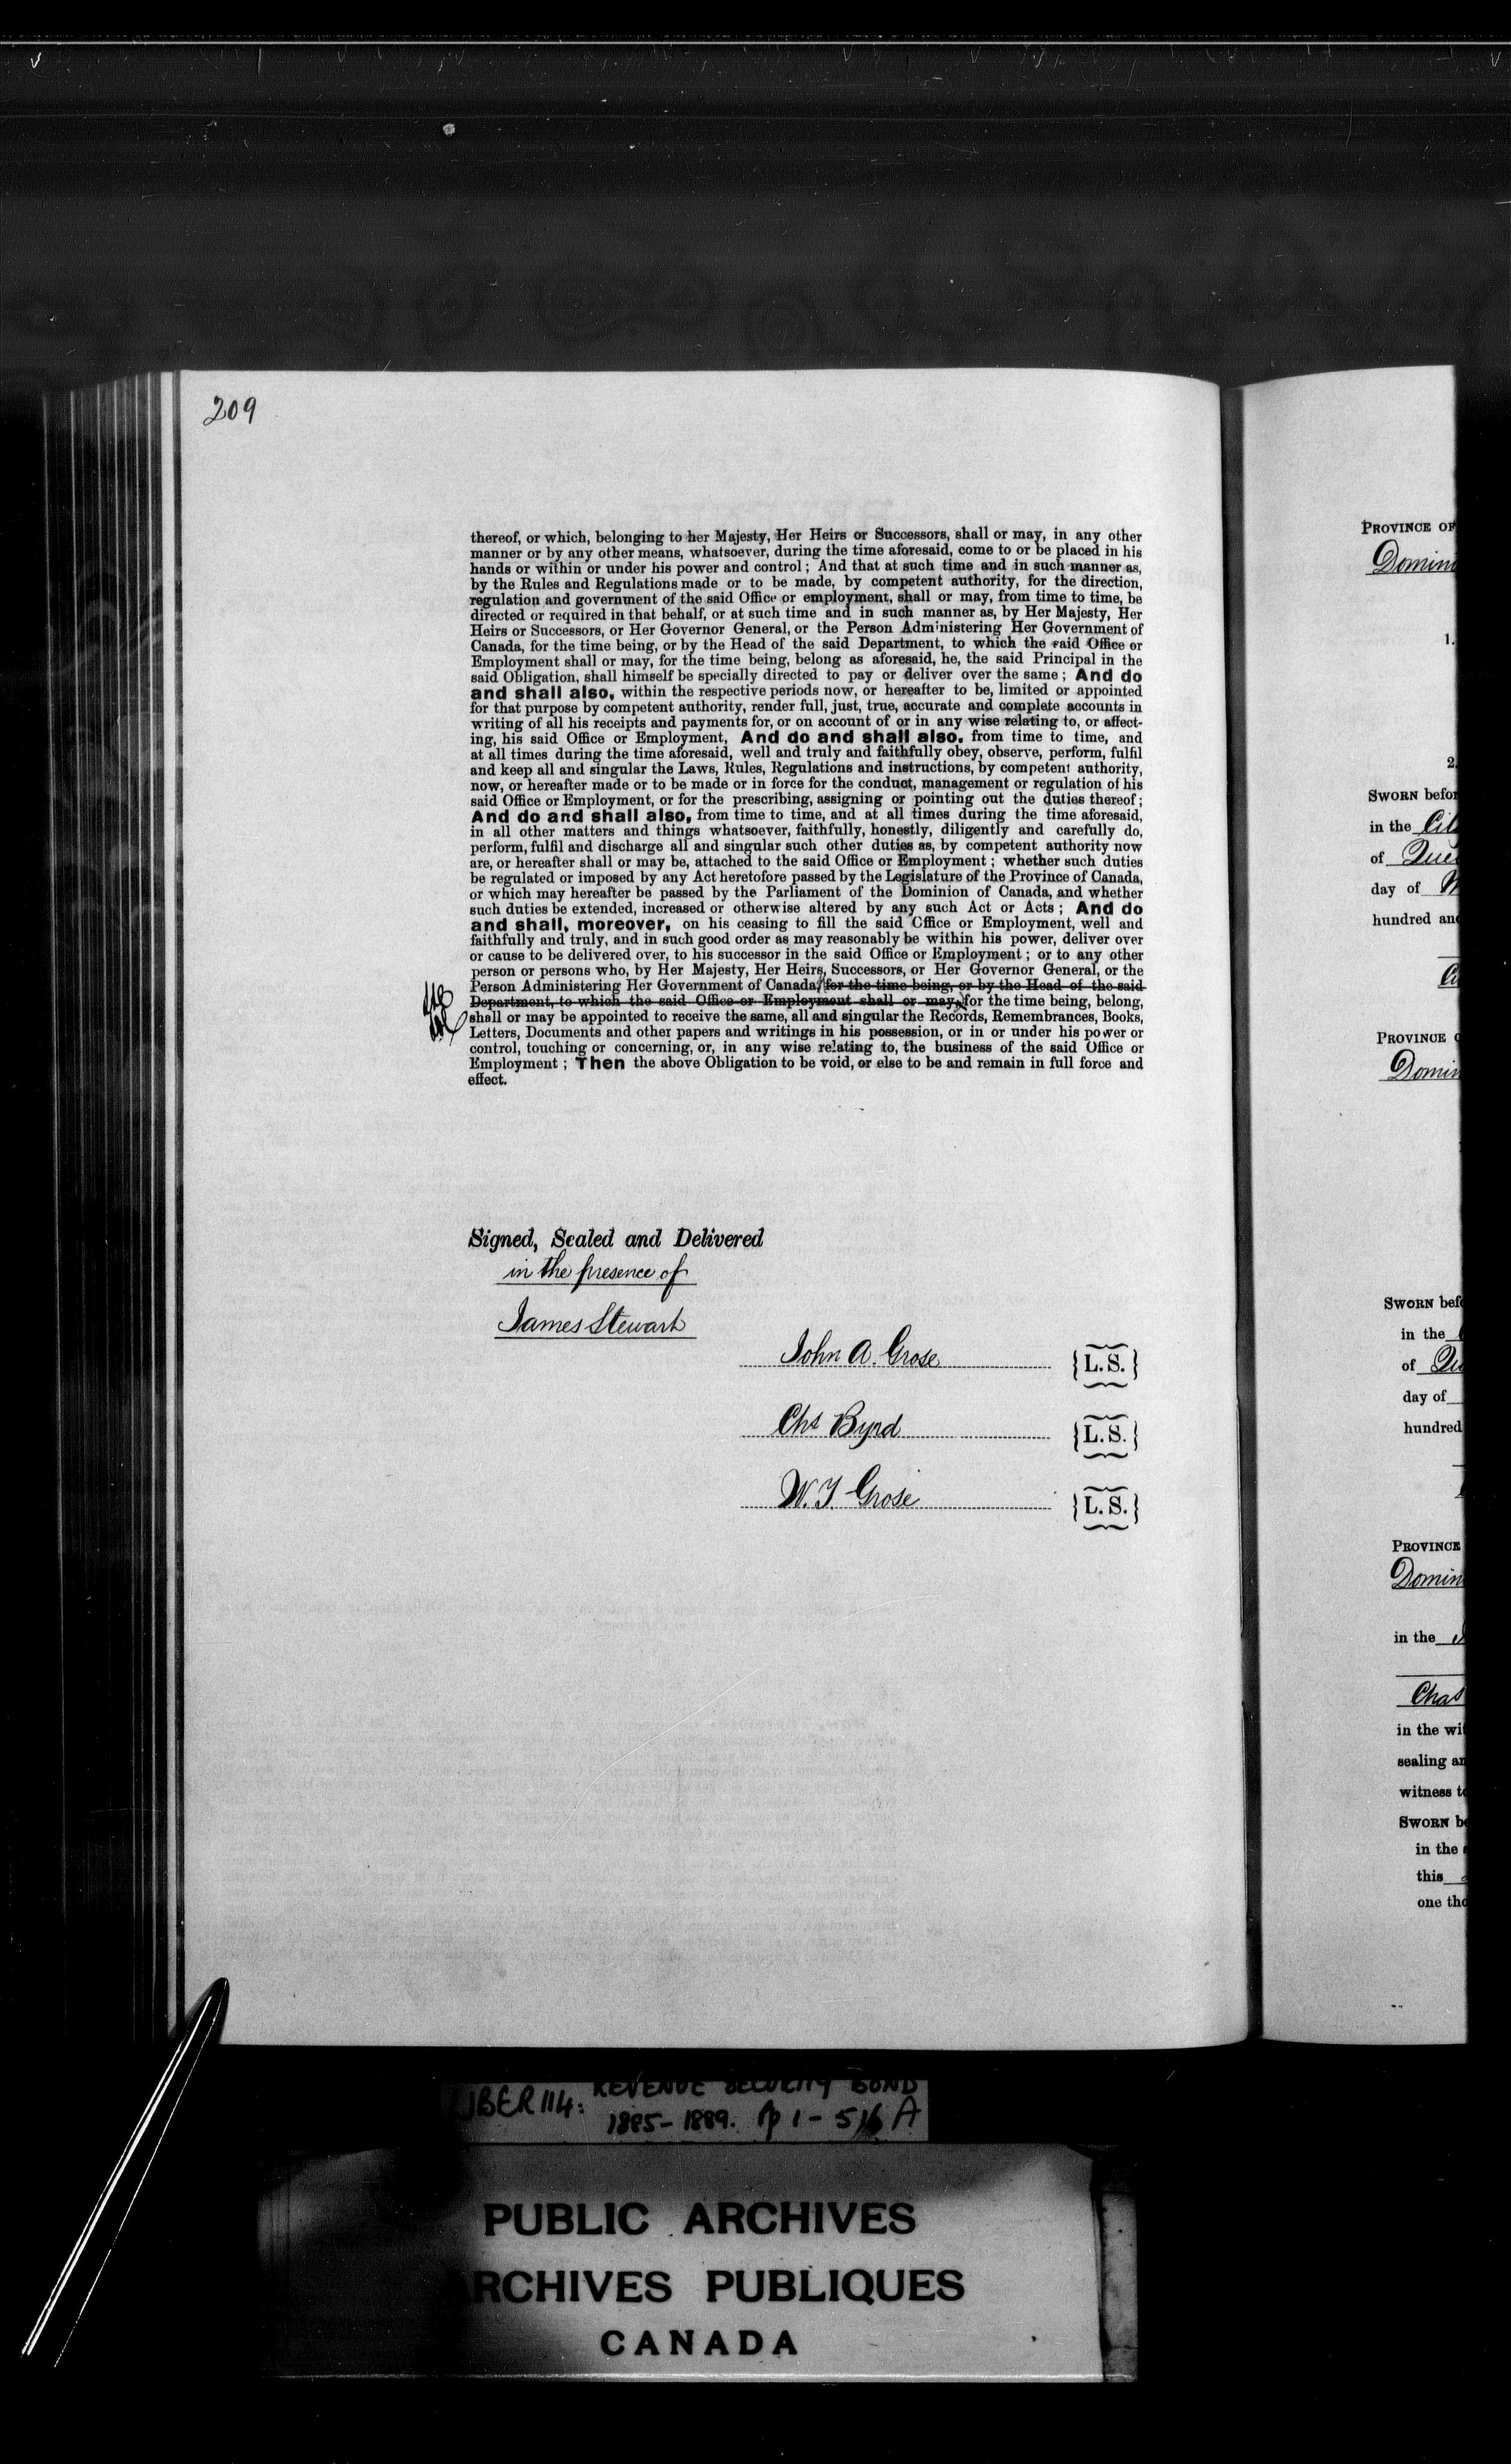 209
thereof, or which, belonging to her Majesty, Her Heirs or Successors, shall or may, in any other
manner or by any other means, whatsoever, during the time aforesaid, come to or be placed in his
hands or within or under his power and control; And that at such time and in such manner as,
by the Rules and Regulations made or to be made, by competent authority, for the direction,
regulation and government of the said Office or employment, shall or may, from time to time, be
directed or required in that behalf, or at such time and in such manner as, by Her Majesty, Her
Heirs or Successors, or Her Governor General, or the Person Administering Her Government of
Canada, for the time being, or by the Head of the said Department, to which the said Office or
Employment shall or may, for the time being, belong as aforesaid, he, the said Principal in the
said Obligation, shall himself be specially directed to pay or deliver over the same; And do
and shall also, within the respective periods now, or hereafter to be, limited or appointed
for that purpose by competent authority, render full, just, true, accurate and complete accounts in
writing of all his receipts and payments for, or on account of or in any wise relating to, or affect-
ing, his said Office or Employment, And do and shall also, from time to time, and
at all times during the time aforesaid, well and truly and faithfully obey, observe, perform, fulfil
and keep all and singular the Laws, Rules, Regulations and instructions, by competent authority,
now, or hereafter made or to be made or in force for the conduct, management or regulation of his
said Office or Employment, or for the prescribing, assigning or pointing out the duties thereof;
And do and shall also, from time to time, and at all times during the time aforesaid,
in all other matters and things whatsoever, faithfully, honestly, diligently and carefully do,
perform, fulfil and discharge all and singular such other duties as, by competent authority now
are, or hereafter shall or may be, attached to the said Office or Employment; whether such duties
be regulated or imposed by any Act heretofore passed by the Legislature of the Province of Canada,
or which may hereafter be passed by the Parliament of the Dominion of Canada, and whether
such duties be extended, increased or otherwise altered by any such Act or Acts; And do
and shall, moreover, on his ceasing to fill the said Office or Employment, well and
faithfully and truly, and in such good order as may reasonably be within his power, deliver over
or cause to be delivered over, to his successor in the said Office or Employment; or to any other
person or persons who, by Her Majesty, Her Heirs, Successors, or Her Governor General, or the
Person Administering Her Government of Canada, for the time being, or by the Head of the said
Department, to which the said Office or Employment shall or may, for the time being, belong,
shall or may be appointed to receive the same, all and singular the Records, Remembrances, Books,
Letters, Documents and other papers and writings in his possession, or in or under his power or
control, touching or concerning, or, in any wise relating to, the business of the said Office or
Employment; Then the above Obligation to be void, or else to be and remain in full force and
effect.
Signed, Sealed and Delivered
in the presence of
James Stewart
John A. Grose {L.S.}
Chs Byrd {L.S.}
W. J. Grose {L.S.}
PROVINCE OF
Domin
1.
2.
SWORN befor
in the Cit
of Que
day of M
hundred and
PROVINCE
Domin
SWORN befo
in the
of Qu
day of
hundred
PROVINCE
Domin
in the
Chas
in the wit
sealing an
witness to
SWORN be
in the
this
one tho
LIBER 114: REVENUE SECURITY BOND
1885-1889. pp 1-516 A
PUBLIC ARCHIVES
ARCHIVES PUBLIQUES
CANADA